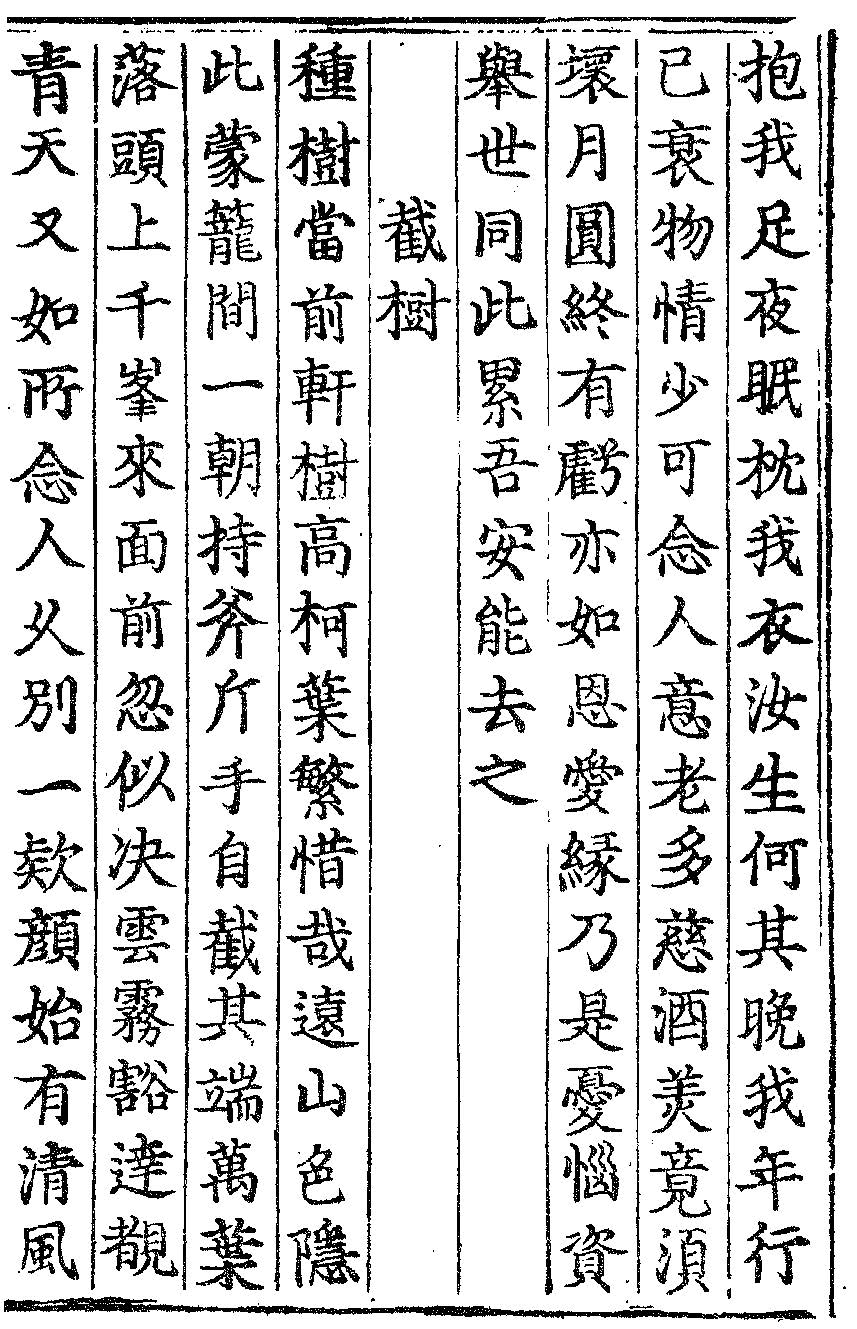 抱我足夜眠枕我衣汝生何其晚我年行
已衰物情少可念人意老多慈酒美竟湏
壞月圓終有虧亦如恩愛緣乃是憂惱資
舉世同此累吾安能去之
截樹
種樹當前軒樹高柯葉繁惜哉遠山色隱
此蒙籠間一朝持斧斤手自截其端萬葉
落頭上千峯來面前忽似决雲霧豁達覩
青天又如所念人乆別一欵顔始有清風